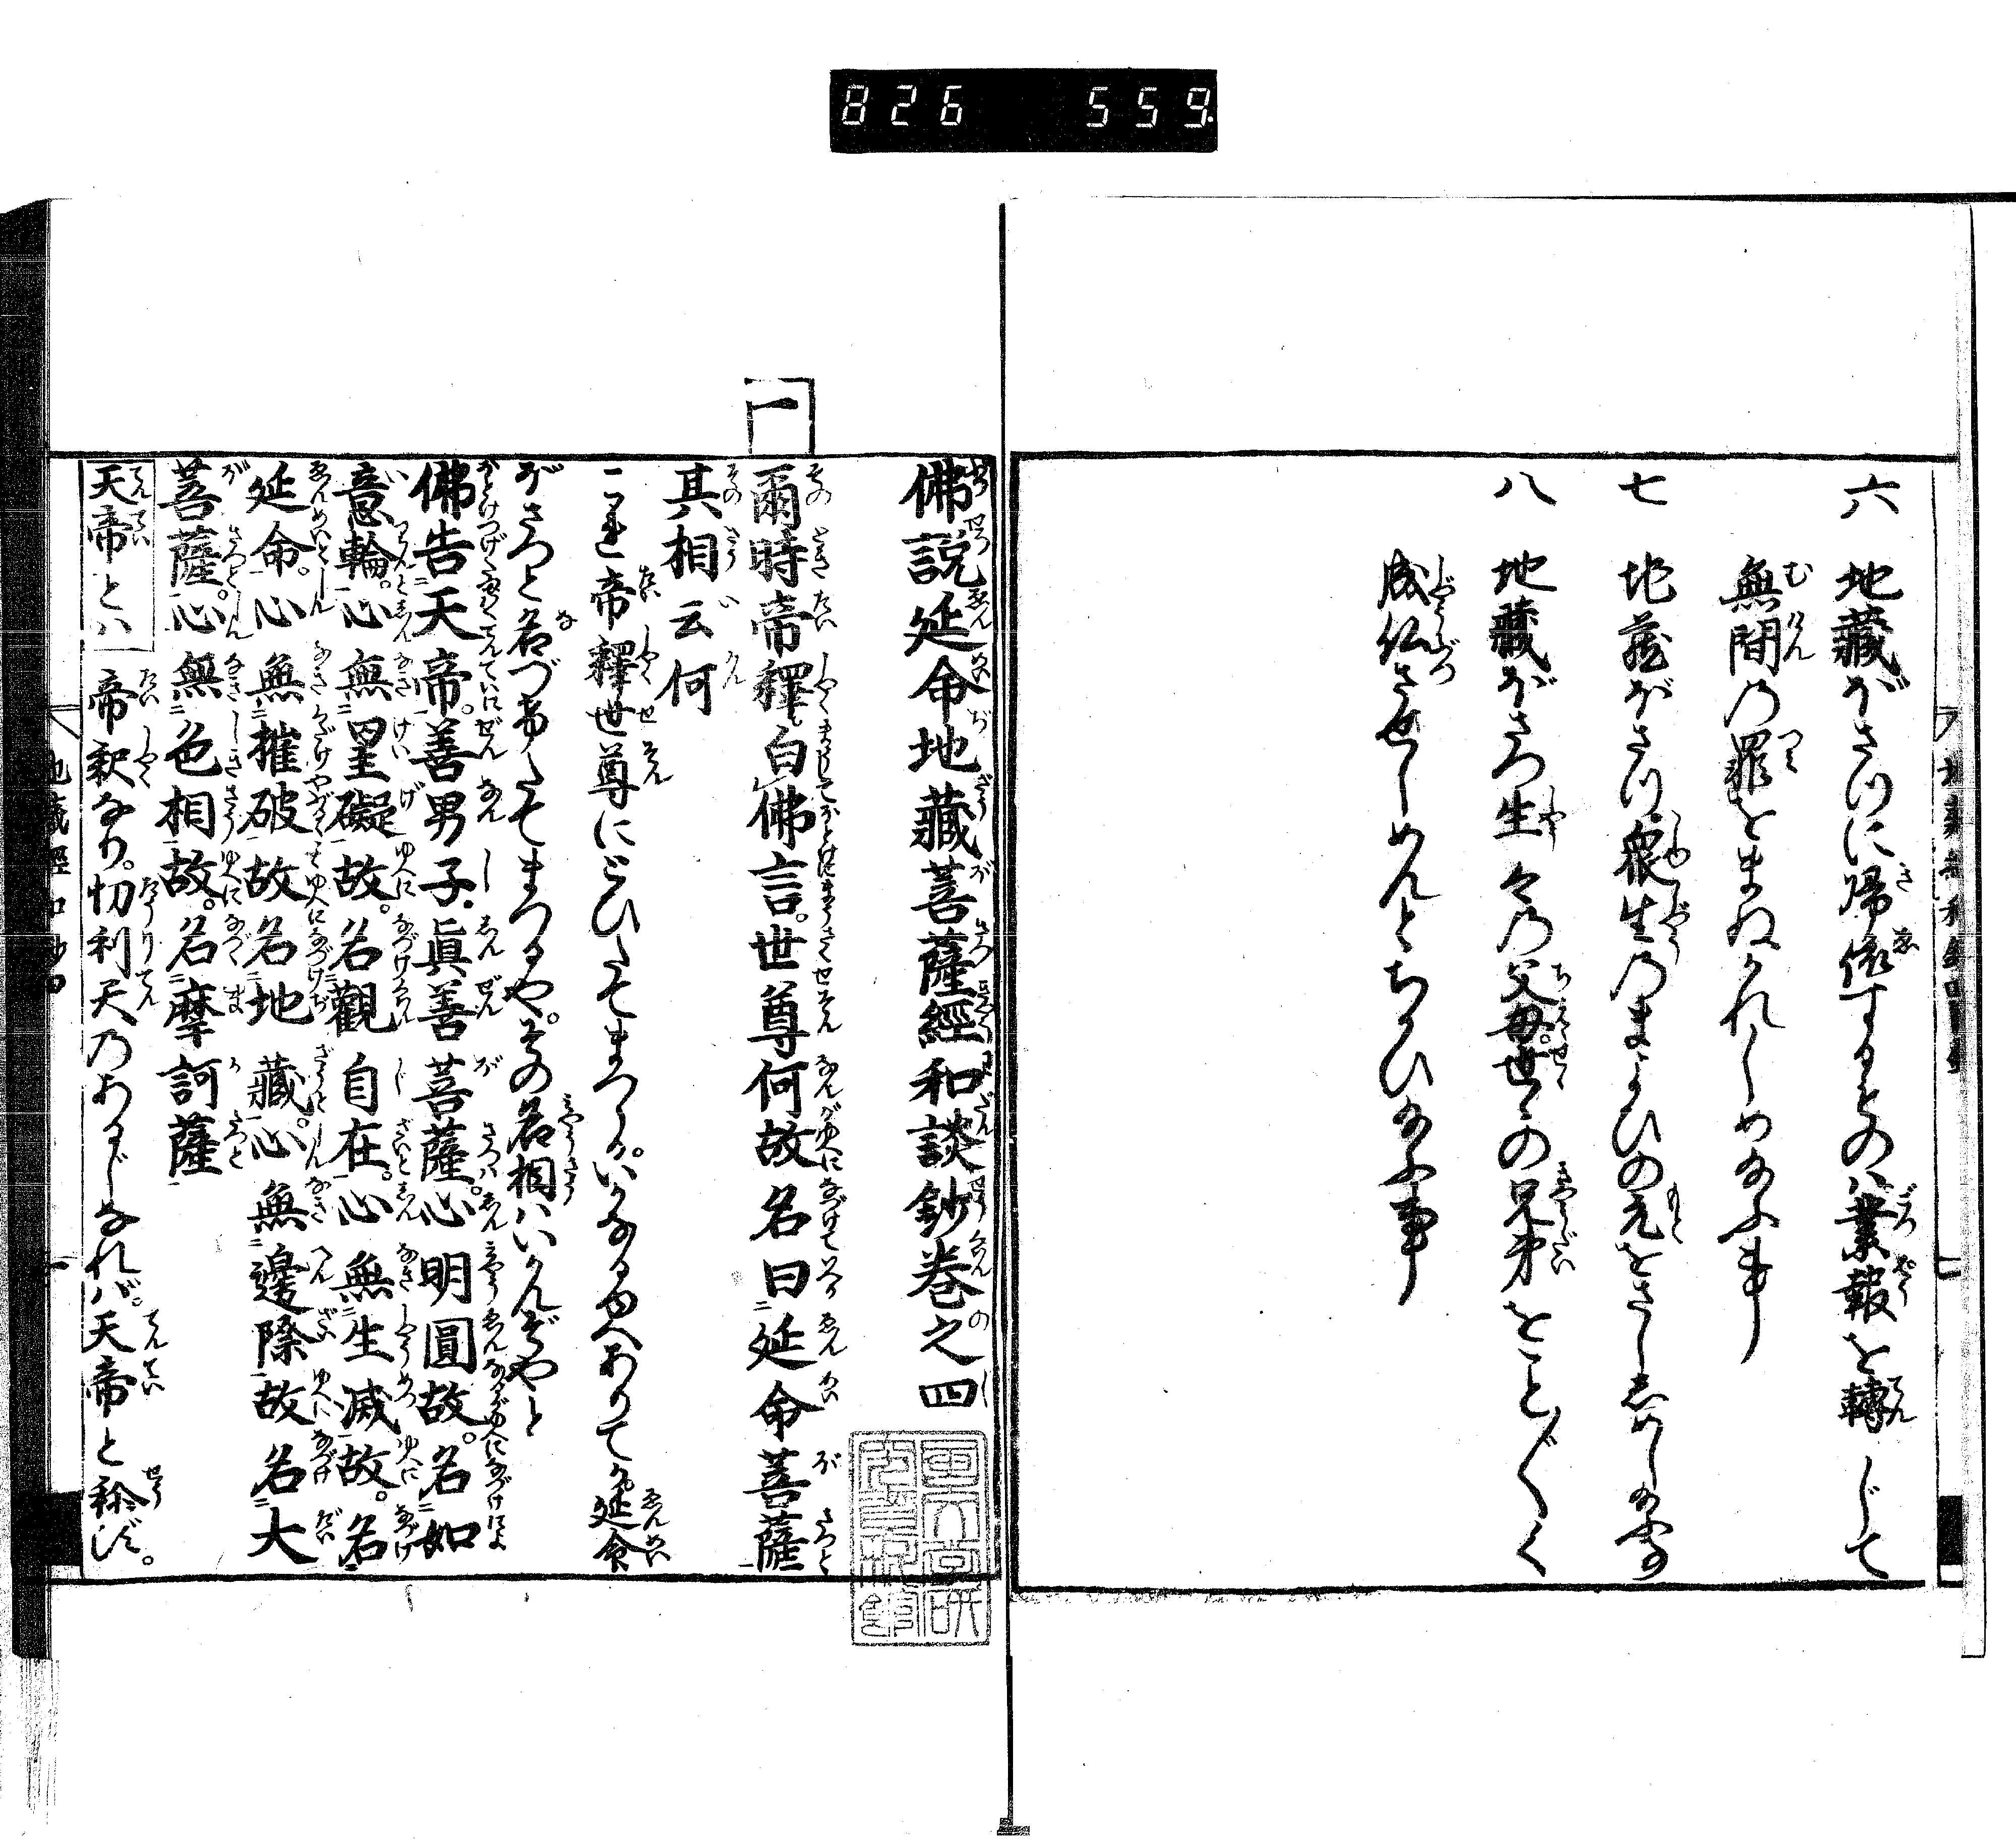 826 559
六 地藏ぼさつに帰依するものハ業報を轉じて
無間の罪をまぬかれしめ給ふ事
七 地蔵ぼさつ衆生のまよひの元をさししめし給ふ事
八 地藏ぼさつ生々の父母世々の兄弟をこと〴〵く
成仏させしめんとちかひ給ふ事
佛說延命地藏菩薩經和談鈔卷之四
一
爾時帝釋白佛言。世尊何故名曰延命菩薩
其相云何
これ帝釋世尊にとひたてまつる。いかなるゆへありてか延命
ぼさつと名づけたてまつるや。その名相はいかんぞやと
佛告天帝。善男子。眞善菩薩。心明圓故。名如
意輪。心無罣礙故。名觀自在。心無生滅故。名
延命。心無摧破故名地藏。心無邊際故名大
菩薩。心無色相故。名摩訶薩
天帝とハ 帝釈なり。忉利天のあるじなれバ。天帝と称ず。